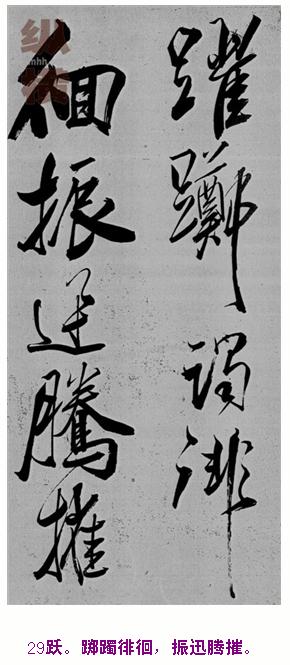 躍躑躅徘
徊振迅騰摧
29跃。踯躅徘徊，振迅腾摧。